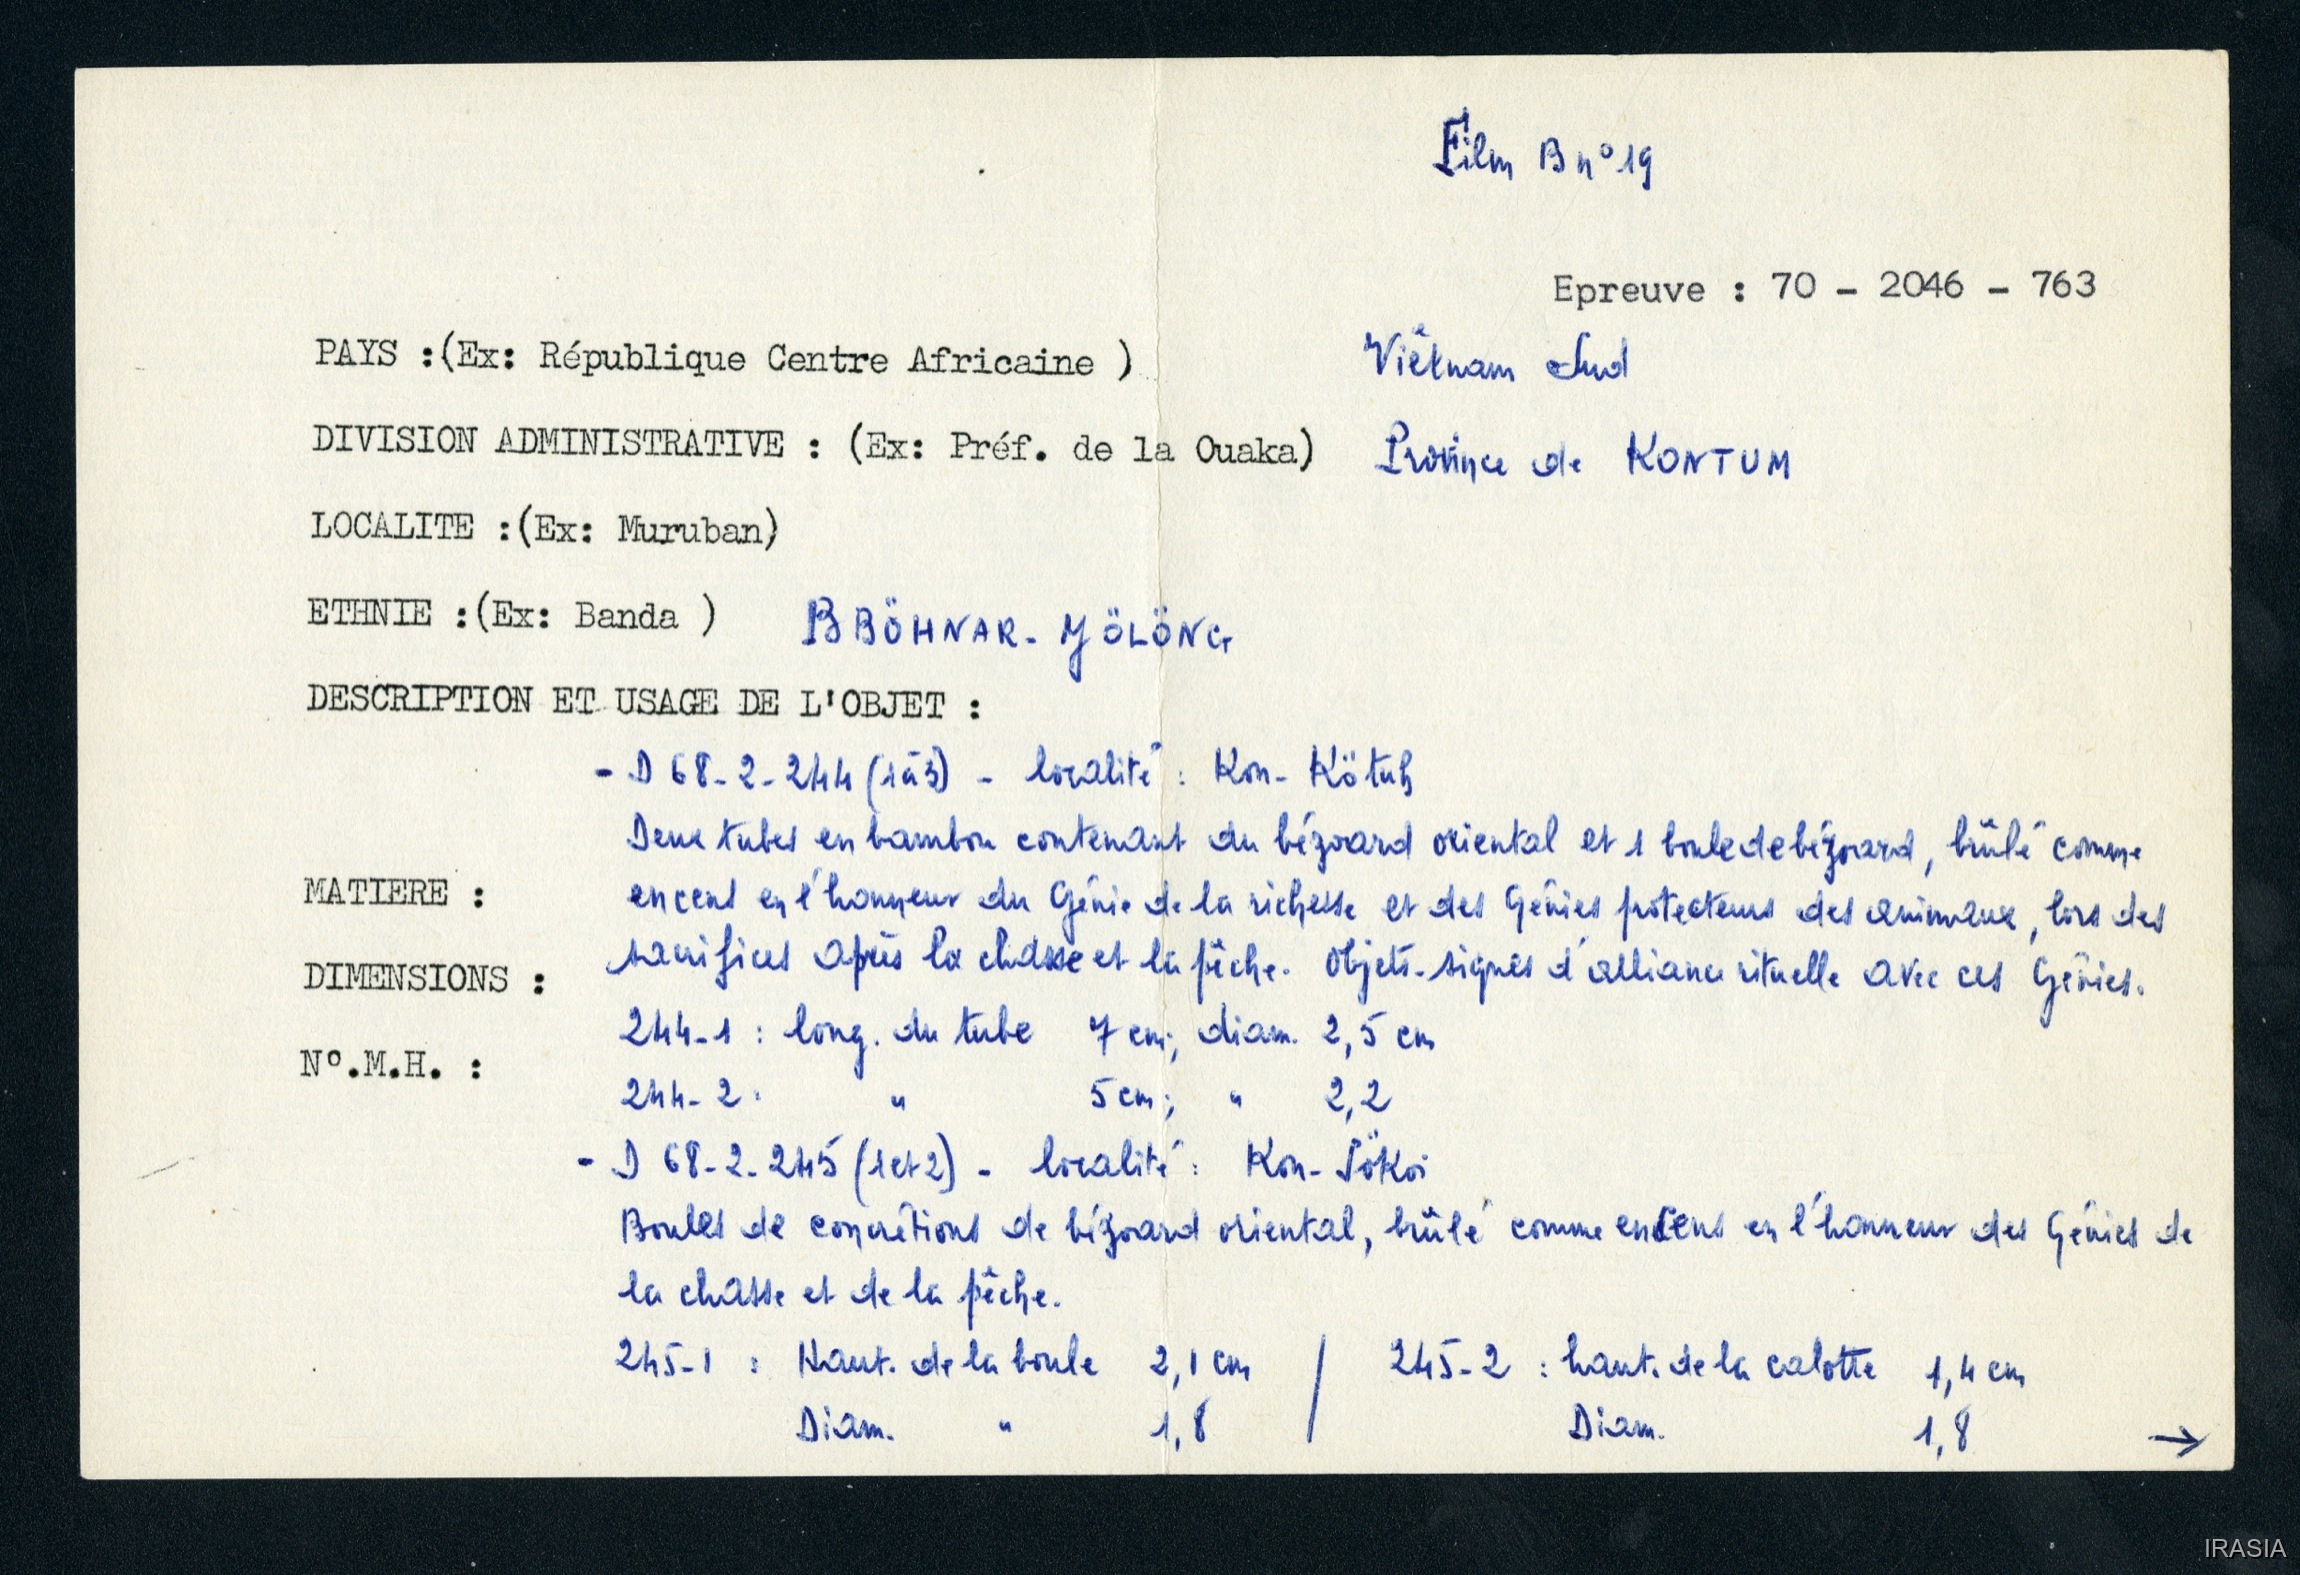 Film B n° 19
Epreuve : 70 - 2046 - 763
PAYS :(Ex: République Centre Africaine ) Viêtnam Sud
DIVISION ADMINISTRATIVE : (Ex: Préf. de la Ouaka) Province de KONTUM
LOCALITE :(Ex: Muruban)
ETHNIE :(Ex: Banda ) BBÖHNAR - JÖLÖNG
DESCRIPTION ET USAGE DE L'OBJET :
- D 68-2-244 (1 à 3) - localité : Kon-Kötuh
Deux tubes en bambou contenant du bézoard oriental et 1 boule de bézoard, brûlé comme
MATIERE : encens en l'honneur du Génie de la richesse et des Génies protecteurs des animaux, lors des
sacrifices après la chasse et la pêche. Objets-signes d'alliance rituelle avec ces Génies.
DIMENSIONS :
244-1 : long. du tube 7 cm; diam. 2,5 cm
N°.M.H. :
244-2 : " 5 cm; " 2,2
- D 68-2-245 (1 et 2) - localité : Kon-Sökoi
Boules de concrétions de bézoard oriental, brûlé comme encens en l'honneur des Génies de
la chasse et de la pêche.
245-1 : Haut. de la boule 2,1 cm / 245-2 : haut. de la calotte 1,4 cm
Diam. " 1,8 Diam. 1,8 →
IRASIA